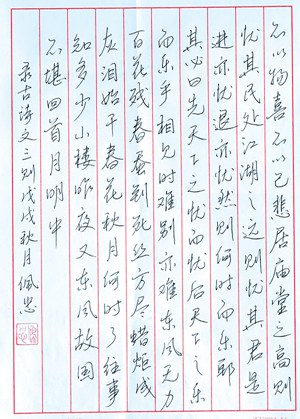 不以物喜不以己悲居庙堂之高则
忧其民处江湖之远则忧其君是
进亦忧退亦忧然则何时而乐耶
其必曰先天下之忧而忧后天下之乐
而乐乎相见时难别亦难东风无力
百花残春蚕到死丝方尽蜡炬成
灰泪始干春花秋月何时了往事
知多少小楼昨夜又东风故国
不堪回首月明中
录古诗文三则戊戌秋月佩忠